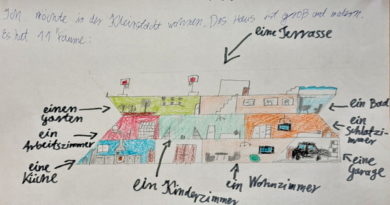 Ich möchte in der Kleinstadt wohnen. Das Haus ist groß und modern.
Es hat 11 Räume:
eine Terrasse
einen Garten
ein Bad
ein Arbeitszimmer
ein Schlafzi-
mmer
eine Küche
ein Kinderzimmer
ein Wohnzimmer
eine Garage